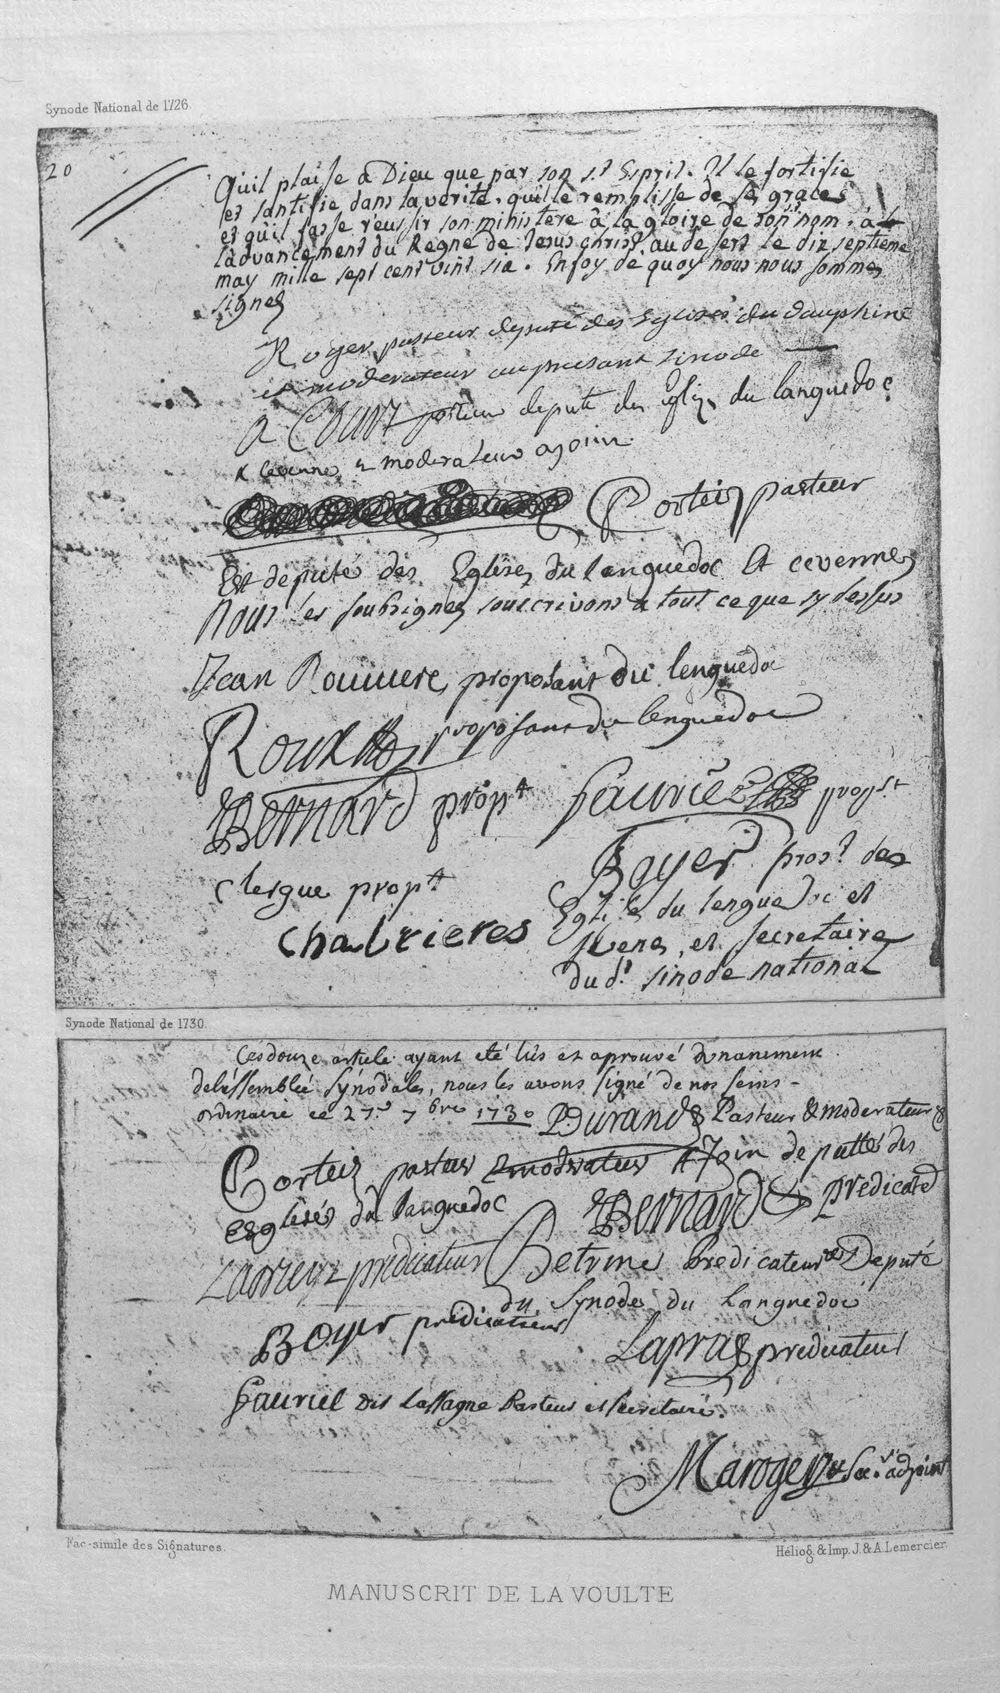 Synode National de 1726.
20
Quil plaise a Dieu que par son st Esprit. Il le fortifie
et santifie dans la verité, quille remplisse de ses graces
et quil fasse reussir son ministere à la gloire de son nom. à
ladvancement du Regne de Jesus christ, au desert le dix septieme
may mille sept cent vint six. En foy de quoy nous nous sommes
signes
Roger pasteur deputé des Eglises du dauphiné
et moderateur au presant sinode
A Court pasteur deputé des Egliz. du languedoc
& cevennes & moderateur ajoint
Corteiz pasteur
Est deputé des Eglises du languedoc Et cevennes
Nous les soubsignes souscrivons a tout ce que sy dessus
Jean Rouviere proposant du lenguedoc
Roux proposant du lenguedoc
Bernard propt Fauriel propst
Clergue propt
Boyer prost des
Eglise du lenguedoc et
sevenes, et secretaire
du dt sinode national
Chabrieres
Synode National de 1730.
Ces douze article ayant eté lüs et aprouvé unanimemt
de l'éssemblée synodales, nous les avons signé de nos seins
ordinaire ce 27e 7bre 1730 Durand Pasteur & moderateur
Corteiz pasteur moderateur adjoin deputté des
Esglises du languedoc Bernard predicate
predicateur Betrine Predicateur Deputé
du Synode du Languedoc
Boyer predicateur
Lapra predicateur
Fauriel dit Lassagne Pasteur et secretaire.
Maroger Sec. adjoint
Fac-simile des Signatures.
Héliog. & Imp. J. & A. Lemercier.
MANUSCRIT DE LA VOULTE